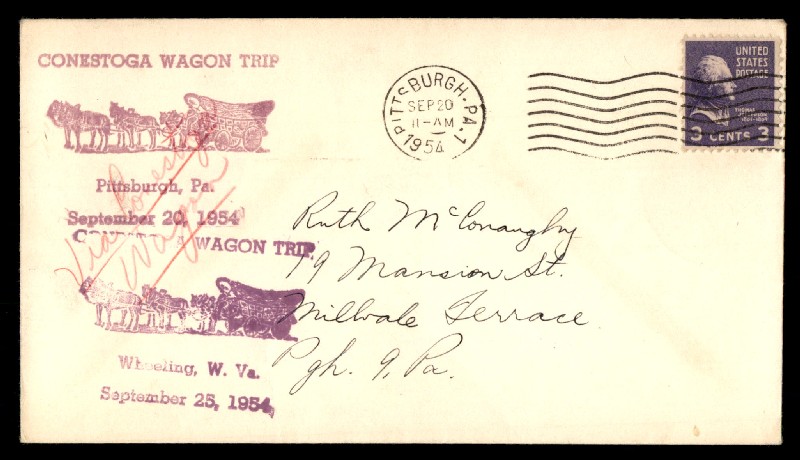 CONESTOGA WAGON TRIP
Pittsburgh, Pa.
September 20, 1954
Via Conestoga
Wagon
CONESTOGA WAGON TRIP
Wheeling, W. Va.
September 25, 1954
PITTSBURGH, PA. 1
SEP 20
11-AM
1954
UNITED
STATES
POSTAGE
THOMAS
JEFFERSON
3 CENTS 3
Ruth McConaughy
79 Mansion St.
Millvale Terrace
Pgh. 9, Pa.